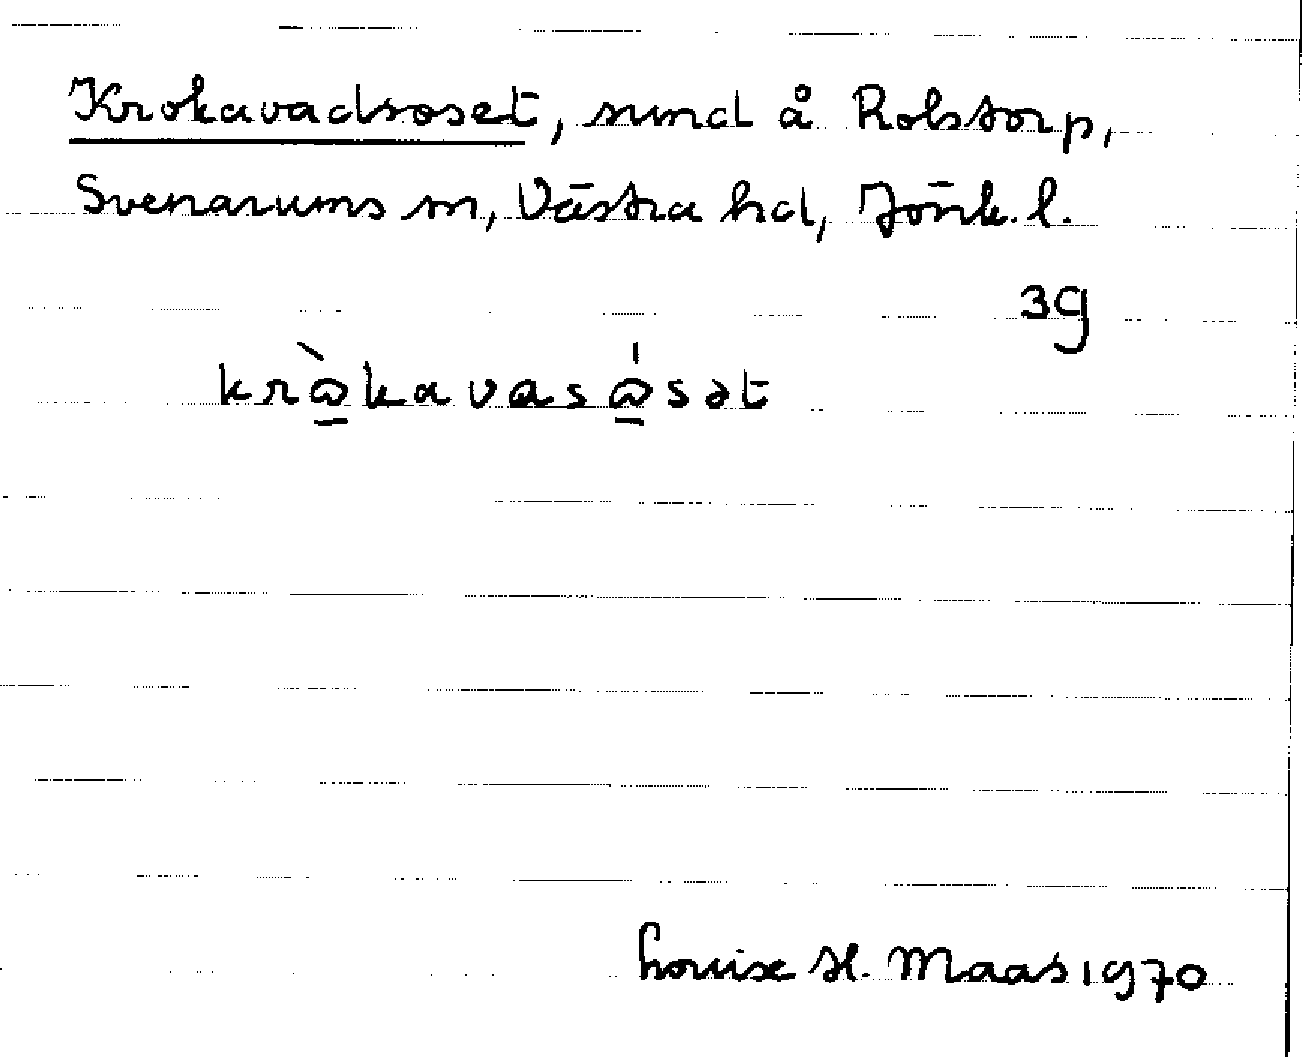 Krokavadsoset, sund å Rolstorp,
Svenarums sn, Västra hd, Jönk. l.
3g
kròkavasósət
Louise H. Maas 1970